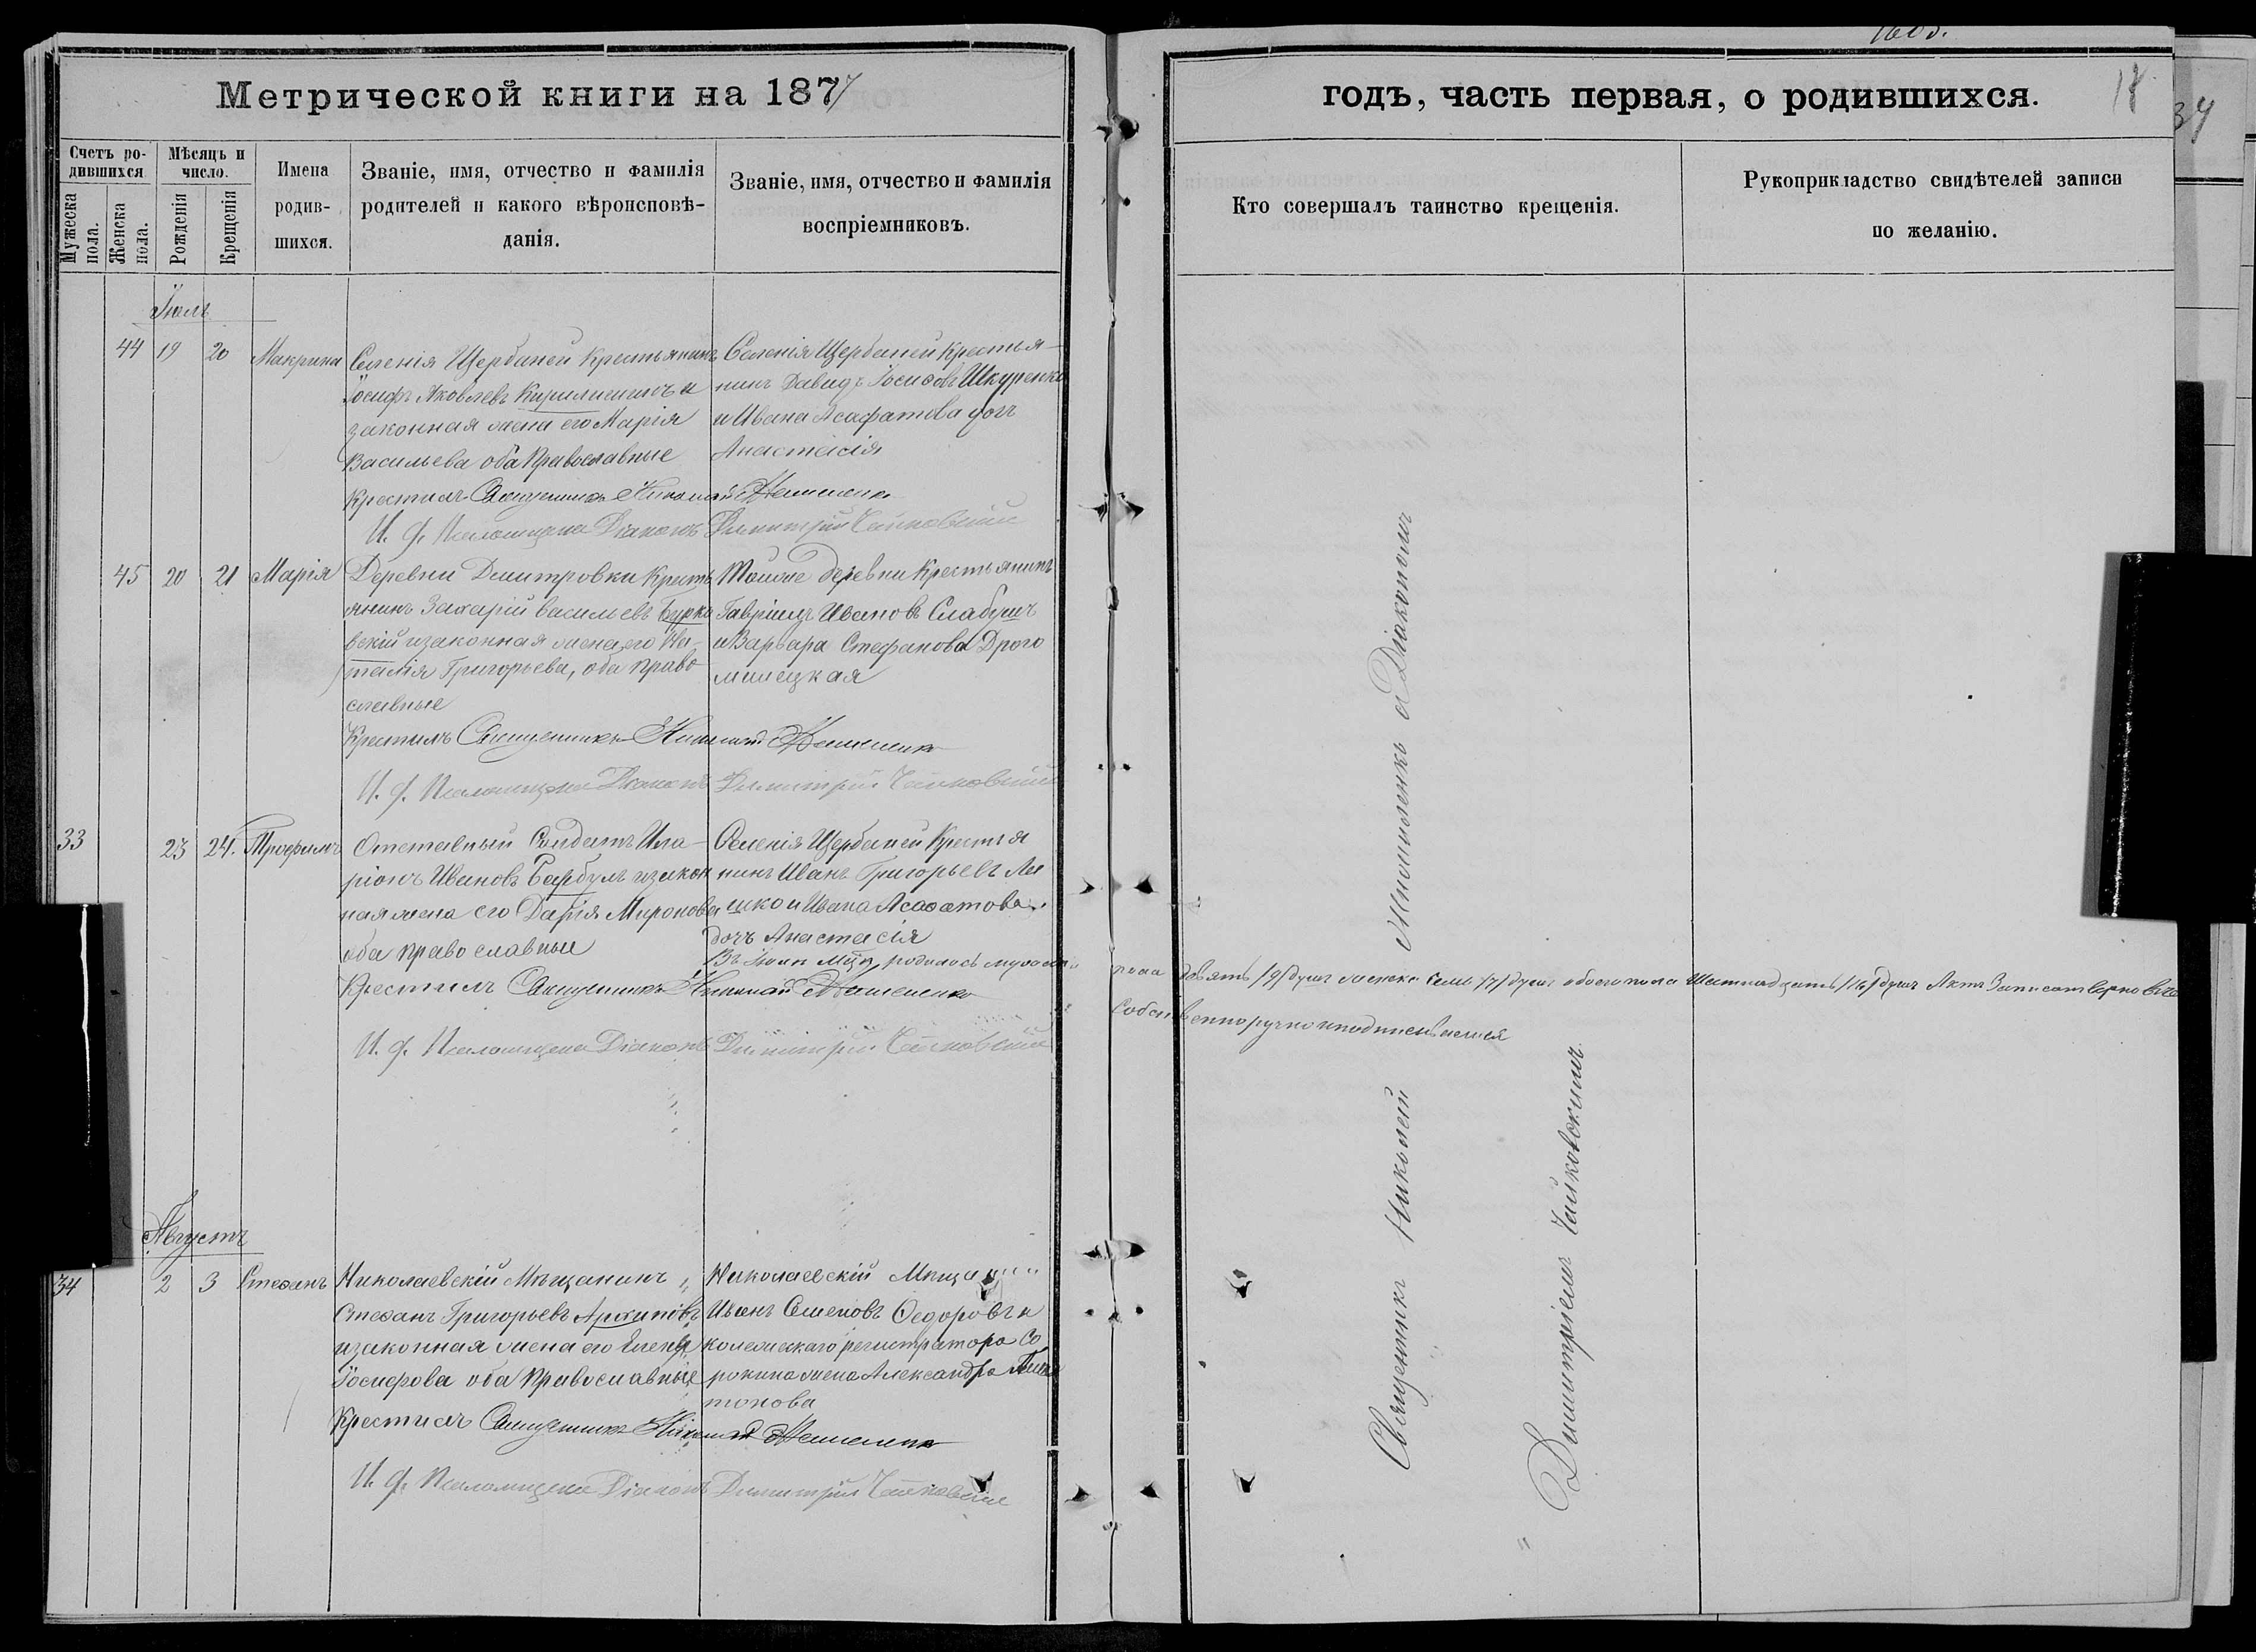 Метрической книги на 1877
Счетъ родившихся
Мѣсяцъ и число.
Имена родившихся.
Званіе, имя, отчество и фамилія родителей и какого вѣроисповѣданія.
Званіе, имя, отчество и фамилія воспріемниковъ.
Мужеска пола.
Женска пола.
Рожденія
Крещенія
Іюль
44 19 20 Макрина
Селенія Щербаней Крестьянинъ
Іосифъ Яковлевъ и
законная жена его Марія
Васильева оба Православные
Селенія Щербаней Крестья-
нинъ Давидъ Іосифовъ Шкуренко
и Ивана Асафатова дочь
Анастасія
Крестилъ Священникъ Николай
И. д. Псаломщика Діаконъ Димитрій Чайковскій
45 20 21 Марія
Деревни Дмитровки Кресть
янинъ Захарій Васильевъ Бурко
вскій и законная жена его На-
талія Григорьева, оба право
славные
Тойже деревни Крестьянинъ
Гавріилъ Ивановъ Слабуш
и Варвара Стефанова Дрого
милецкая
Крестилъ Священникъ Николай
И. д. Псаломщика Діаконъ Димитрій Чайковскій
33 23 24. Трофимъ
Отставный Солдатъ Ила-
ріонъ Ивановъ Барбулъ и закон
ная жена его Дарія Миронова
оба православные
Селенія Щербаней Крестья
нинъ Иванъ Григорьевъ Ля
шко и Ивана Асафатова
дочь Анастасія
Крестилъ Священникъ Николай
И. д. Псаломщика Діаконъ Димитрій Чайковскій
Въ Іюлѣ мцѣ родилось мужеска
Августъ
34 2 3 Стефанъ
Николаевскій Мѣщанинъ
Стефанъ Григорьевъ Архиповъ
и законная жена его Елена
Іосифова оба Православные
Николаевскій Мѣщанинъ
Иванъ Семеновъ Ѳедоровъ и
колежскаго регистратора Со
рокина жена Александра Пла
тонова
Крестилъ Священникъ Николай
И. д. Псаломщика Діаконъ Димитрій Чайковскій
годъ, часть первая, о родившихся.
34
Кто совершалъ таинство крещенія.
Рукоприкладство свидѣтелей записи по желанію.
пола девять /9/ душъ женска семь /7/ душъ обоего пола шестнадцать /16/ душъ Актъ записанъ верно въ чемъ
собственноручно и подписываемся
Священникъ Николай съ Діакономъ
Димитріемъ Чайковскимъ